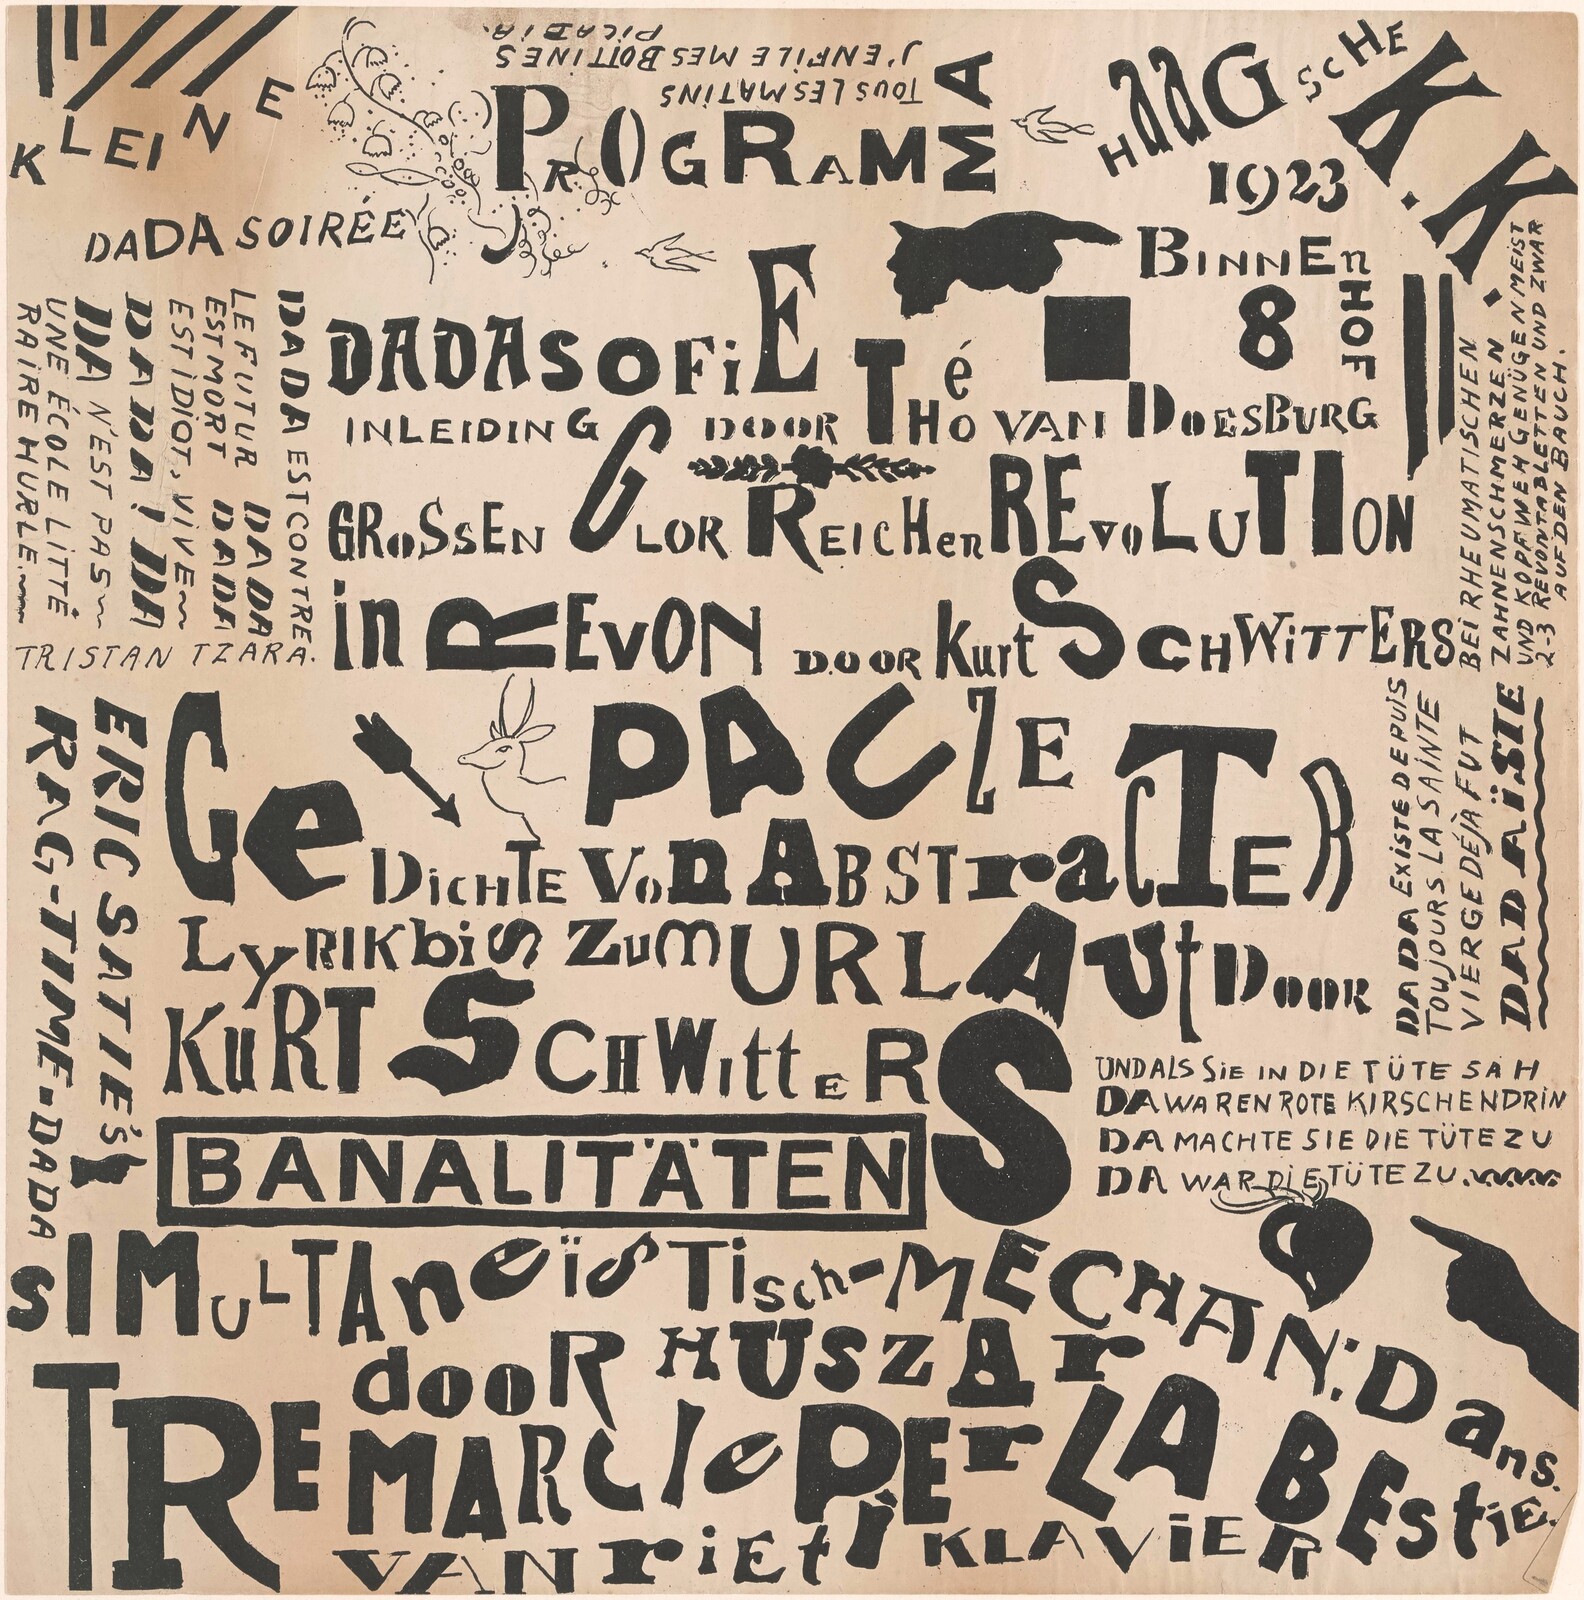 KLEINE
DADA SOIRÉE
TOUS LES MATINS
J'ENFILE MES BOTTINES
PICADIA.
PROGRAMMA
HAAGSCHE
K.K.
1923
BINNENHOF
8
DADASOFIE
INLEIDING DOOR Théo VAN DOESBURG
GROSSEN GLORREICHEN REVOLUTION
in REVON DOOR Kurt SCHWITTERS
PAUZE
GeDICHTE VOn ABSTraCTER
LyRIK biS ZUm URLAUt DOOR
KuRT SCHWittERS
BANALITÄTEN
SIMULTAneïsTisch-MECHAN: Dans.
dooR HUSZAr
TREMARCIe PEr LA BEStiE.
VAN riEtI KLAVIER
DADA EST CONTRE A.
LE FUTUR DADA
EST MORT DADA
EST IDIOT, VIVE
DADA! DA
DA N'EST PAS
UNE ÉCOLE LITTÉ
RAIRE HURLE
TRISTAN TZARA.
ERIC SATIE'S
RAG-TIME-DADA
BEI RHEUMATISCHEN
ZAHNENSCHMERZEN
UND KOPFWEH GENÜGEN MEIST
2-3 REVONTABLETTEN UND ZWAR
AUF DEN BAUCH.
DADA EXISTE DEPUIS
TOUJOURS LA SAINTE
VIERGE DÉJÀ FUT
DADAÏSTE
UND ALS SIE IN DIE TÜTE SAH
DA WAREN ROTE KIRSCHEN DRIN
DA MACHTE SIE DIE TÜTE ZU
DA WAR DIE TÜTE ZU.